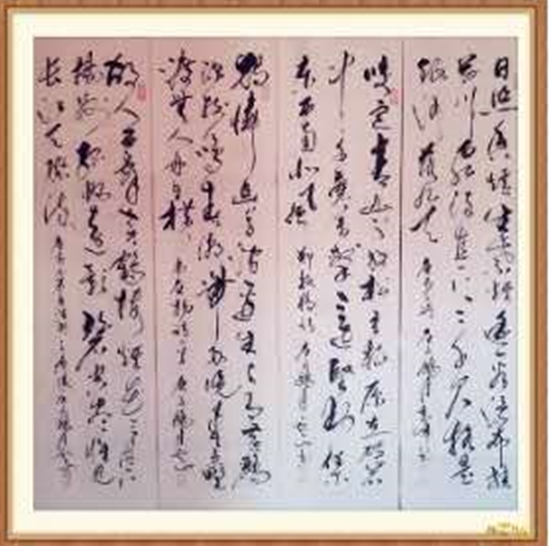 日照香炉生紫烟遥看瀑布挂
前川飞流直下三千尺疑是
银河落九天
咬定青山不放松立根原在破岩
中千磨万击还坚劲任尔
东西南北风 郑板桥诗
独怜幽草涧边生上有黄鹂
深树鸣春潮带雨晚来急野
渡无人舟自横
故人西辞黄鹤楼烟花三月下
扬州孤帆远影碧空尽唯见
长江天际流